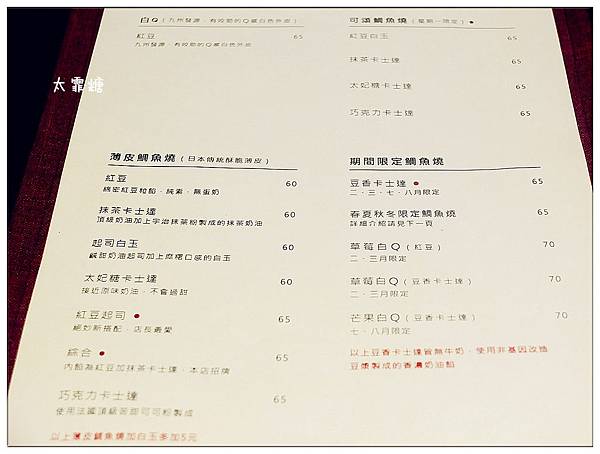 白Q（九州發源，有咬勁的Q黏白色外皮）
紅豆 65
九州發源，有咬勁的Q黏白色外皮
太霏糖
薄皮鯛魚燒（日本傳統酥脆薄皮）
紅豆 60
綿密紅豆粒餡，純素，無蛋奶
抹茶卡士達 60
頂級奶油加上宇治抹茶粉製成的抹茶奶油
起司白玉 60
鹹甜奶油起司加上麻糬口感的白玉
太妃糖卡士達 60
接近原味奶油，不會過甜
紅豆起司 ● 65
絕妙新搭配，店長最愛
綜合 ● 65
內餡為紅豆加抹茶卡士達，本店招牌
巧克力卡士達 65
使用法國頂級苦甜可可粉製成
以上薄皮鯛魚燒加白玉多加5元
可頌鯛魚燒（星期一限定）●
紅豆白玉 65
抹茶卡士達 65
太妃糖卡士達 65
巧克力卡士達 65
期間限定鯛魚燒
豆香卡士達 ● 65
二、三、七、八月限定
春夏秋冬限定鯛魚燒 65
詳細介紹請見下一頁
草莓白Q（紅豆） 70
二、三月限定
草莓白Q（豆香卡士達） 70
二、三月限定
芒果白Q（豆香卡士達） 70
七、八月限定
以上豆香卡士達皆無牛奶，使用非基因改造
豆漿製成的香濃奶油餡